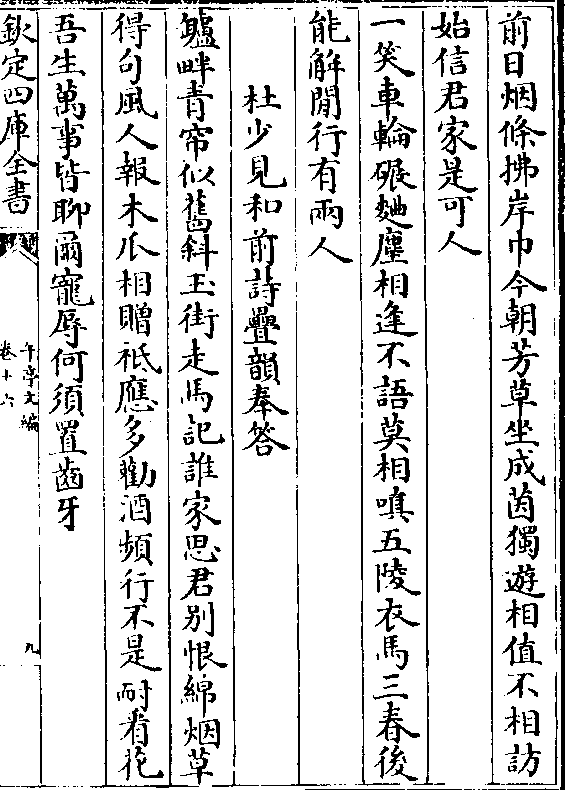 前日烟條拂岸巾今朝芳草坐成茵獨遊相值不相訪
始信君家是可人
一笑車輪碾麯塵相逢不語莫相嗔五陵衣馬三春後
能解閒行有兩人
杜少見和前詩疊韻奉答
鱸畔青帘似舊斜玉街走馬記誰家思君別恨綿烟草
得句風人報木瓜相贈祗應多勸酒頻行不是耐看花
吾生萬事皆聊爾寵辱何須置齒牙
欽定四庫全書
午亭文編
卷十六
九